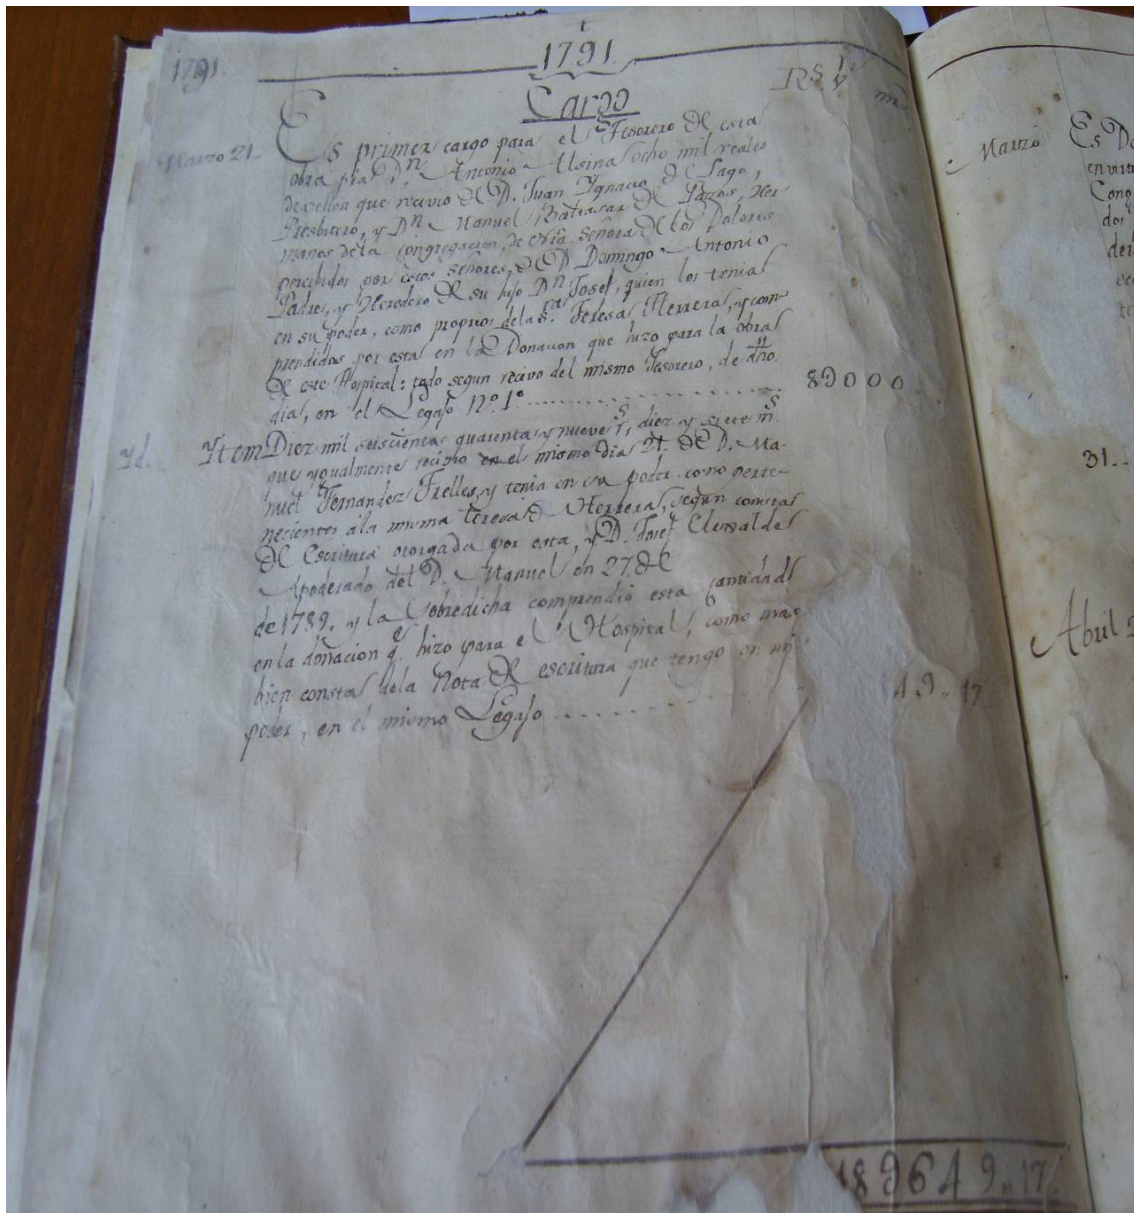 1791.
1791.
Cargo
Rs. v.n
ms
Marzo 21
Es primer cargo para el Tesorero de esta
obra pia Dn. Antonio Alsina ocho mil reales
de vellon que recivio de D. Juan Ygnacio de Lago,
Presbitero, y Dn. Manuel Baltasar de Pazos, Her
manos de la congregacion, de ntra. Señora de los Dolores
percibidos por estos señores, de D. Domingo Antonio
Padre, y Heredero de su hijo Dn. Josef, quien los tenia
en su poder, como propios de la Sra. Teresa Herrera, y com
prendidos por esta en la Donacion que hizo para la obra
de este Hospital: todo segun recivo del mismo Tesorero, de dho.
dia, en el Legajo No. 1o.
89000
Yd.
Ytem Diez mil seiscientos quarenta y nueve rs, diez y siete ms.
que ygualmente recivio en el mismo dia 21. de D. Ma-
nuel Fernandez Trelles, y tenia en su poder como perte-
necientes a la misma Teresa Herrera, segun consta
de Escritura otorgada por esta, y D. Josef
Apoderado del D. Manuel en 27. de
de 1789. y la sobredicha comprendio esta cantidad
en la donacion qe. hizo para el Hospital, como mas
bien consta de la Nota de escritura que tengo en mi
poder, en el mismo Legajo
49.. 17
189649.. 17
Marzo
Es
31..
Abril 2